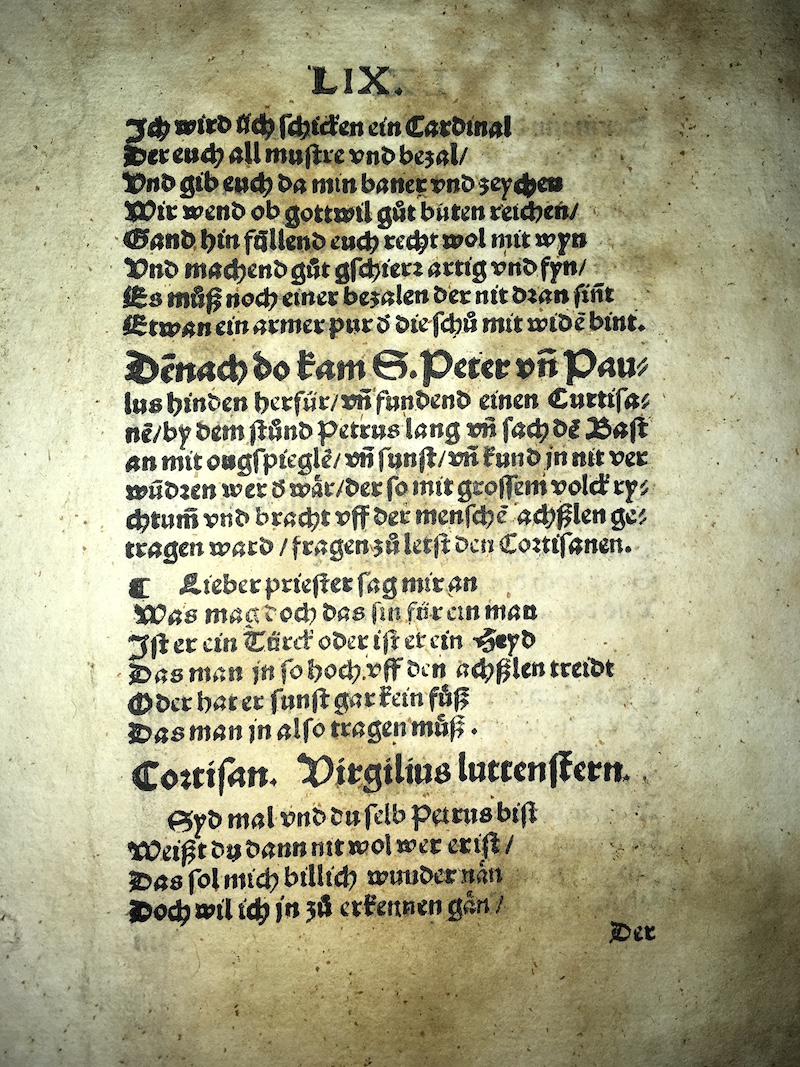 LIX.
Jch wird üch ſchicken ein Cardinal
Der euch all muſtre vnd bezal/
Vnd gib euch da min baner vnd zeychen
Wir wend ob gottwil gůt büten reichen/
Gand hin fǟllend euch recht wol mit wyn
Vnd machend gůt gſchierꝛ artig vnd fyn/
Es můß noch einer bezalen der nit dꝛan ſiñt
Etwan ein armer pur d̕ die ſchů mit widē bint.
Dēnach do kam S. Peter vñ Pau⸗
lus hinden herfür/vñ fundend einen Curtiſa⸗
nē/by dem ſtůnd Petrus lang vñ ſach dē Baſt
an mit ougſpieglē/vñ ſunſt/vñ kund jn nit ver
wūdꝛen wer d̕ wär/der ſo mit groſſem volck ry⸗
chtum̄ vnd bracht vff der menſchē achßlen ge⸗
tragen ward /fragen zů letſt den Coꝛtiſanen.
¶ Lieber prieſter ſag mir an
Was mag doch das ſin für ein man
Jſt er ein Türck oder iſt er ein Heyd
Das man jn ſo hoch vff den achßlen treidt
Oder hat er ſunſt gar kein fůß
Das man jn alſo tragen můß.
Coꝛtiſan. Virgilius luttenſtern.
Syd mal vnd du ſelb Petrus biſt
Weißt du dann nit wol wer er iſt/
Das ſol mich billich wunder nän
Doch wil ich jn zů erkennen gän/
Der